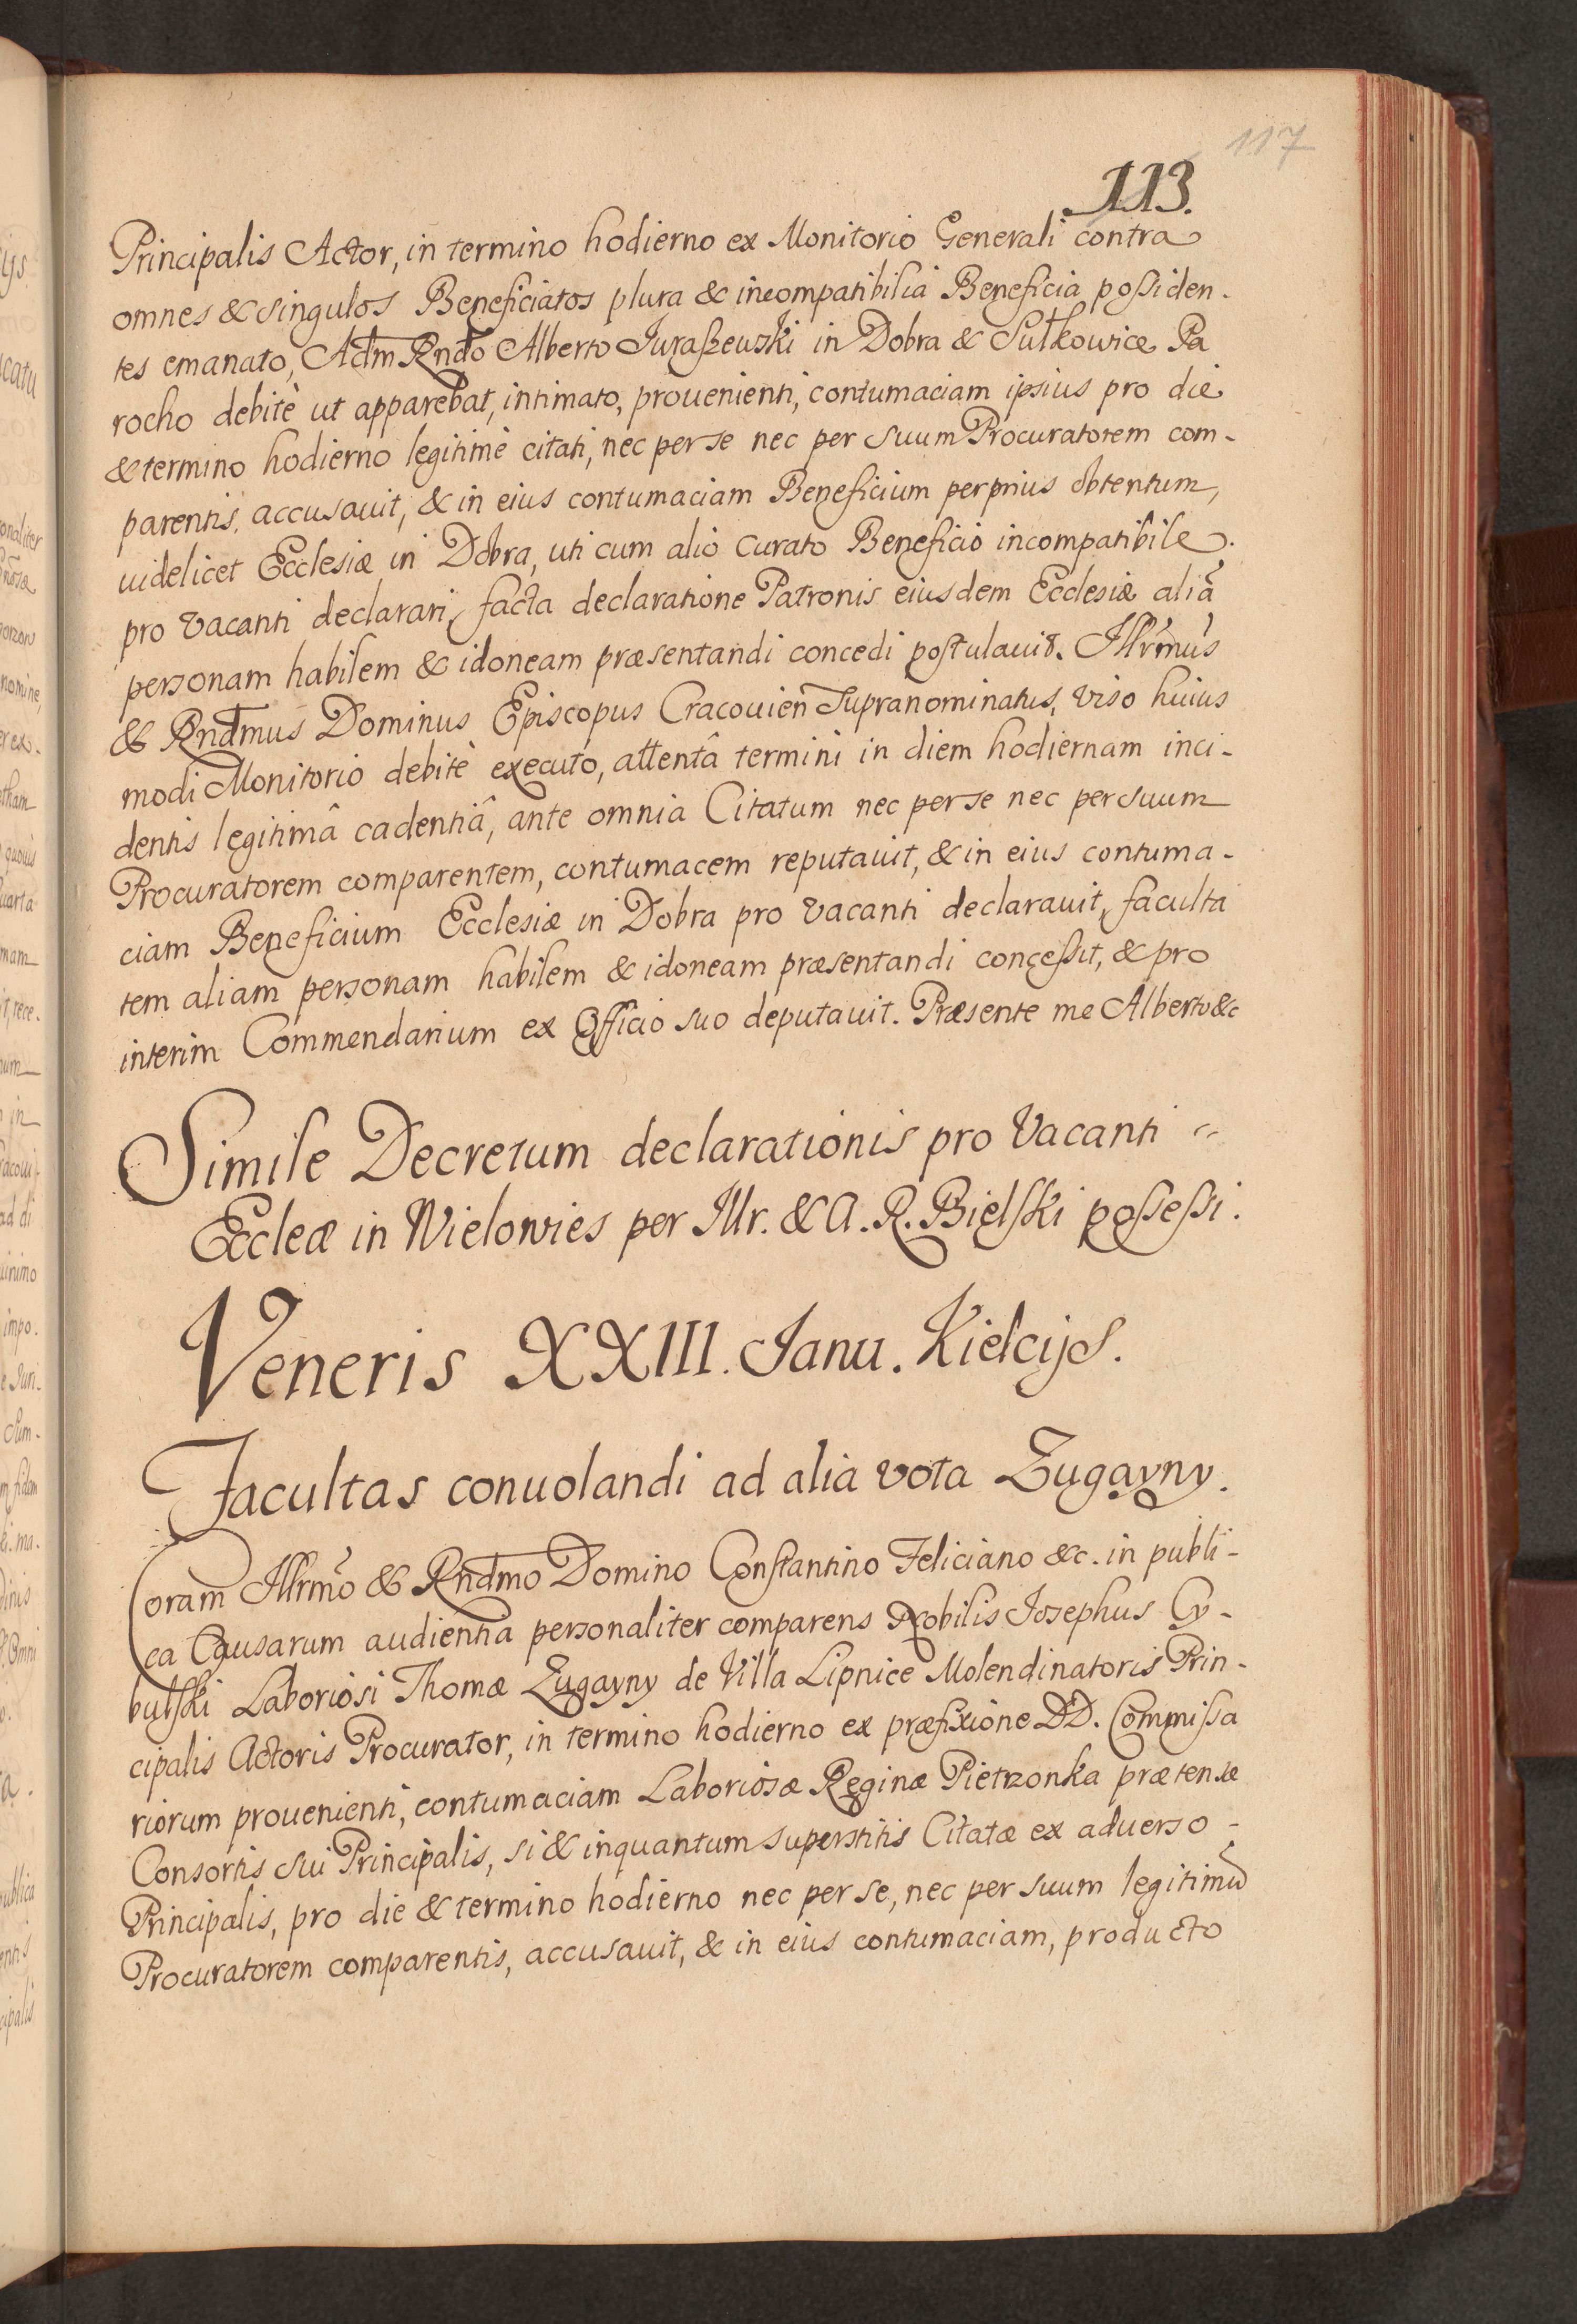 117
113.
Principalis Actor, in termino hodierno ex Monitorio Generali contra
omnes & singulos Beneficiatos plura & incompatibilia Beneficia possiden-
tes emanato, Adm Rndo Alberto Juraszewski in Dobra & Sułkowice Pa
rocho debitè ut apparebat, intimato, prouenienti, contumaciam ipsius pro die
& termino hodierno legitimè citati, nec per se nec per suum Procuratorem com-
parentis, accusauit, & in eius contumaciam Beneficium per prius obtentum,
uidelicet Ecclesiæ in Dobra, uti cum alio Curato Beneficio incompatibile.
pro Vacanti declarari, facta declaratione Patronis eiusdem Ecclesiæ aliã
personam habilem & idoneam præsentandi concedi postulauit. Illrmus
& Rndmus Dominus Episcopus Cracouien Supranominatus, viso huius
modi Monitorio debitè executo, attentâ termini in diem hodiernam inci-
dentis legitimâ cadentiâ, ante omnia Citatum nec per se nec per suum
Procuratorem comparentem, contumacem reputauit, & in eius contuma-
ciam Beneficium Ecclesiæ in Dobra pro Vacanti declarauit, faculta
tem aliam personam habilem & idoneam præsentandi concessit, & pro
interim Commendarium ex Officio suo deputauit. Præsente me Alberto &c
Simile Decretum declarationis pro Vacanti
Eccleæ in Wielowies per Illr. & A. R. Bielski possessi.
Veneris XXIII. Janu. Kielcijs.
Facultas conuolandi ad alia vota Zugayny.
Coram Illrmo & Rndmo Domino Constantino Feliciano &c. in publi-
ca Causarum audientia personaliter comparens Nobilis Josephus Cy-
bulski Laboriosi Thomæ Zugayny de Villa Lipnice Molendinatoris Prin-
cipalis Actoris Procurator, in termino hodierno ex præfixione DD. Commissa
riorum prouenienti, contumaciam Laboriosæ Reginæ Pietrzonka prætensæ
Consortis sui Principalis, si & inquantum superstitis Citatæ ex aduerso -
Principalis, pro die & termino hodierno nec per se, nec per suum legitimũ
Procuratorem comparentis, accusauit, & in eius contumaciam, producto